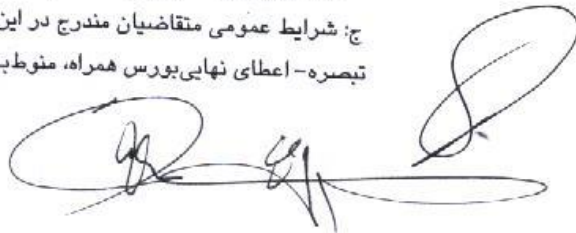 ج: شرایط عمومی متقاضیان مندرج در این
تبصره- اعطای نهایی‌بورس همراه، منوط‌به